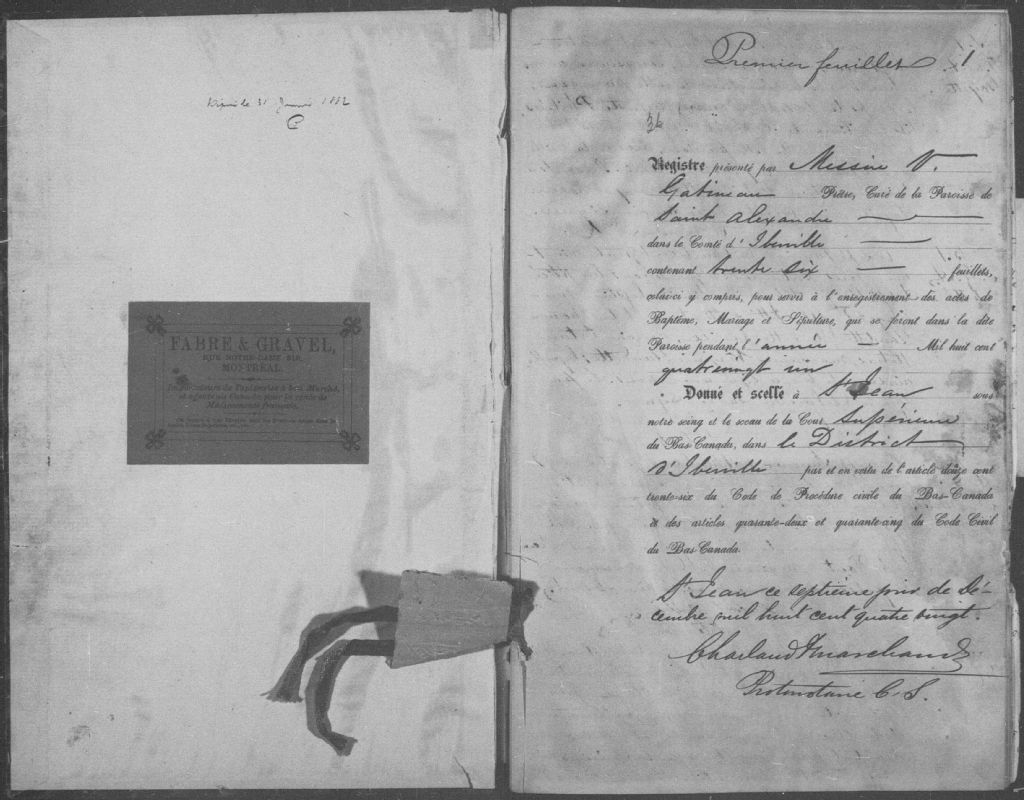 31 Janvier 1882
FABRE & GRAVEL,
RUE NOTRE-DAME 219,
MONTRÉAL.
Importateurs de Tapisseries à bon Marché,
et agents au Canada pour la vente de
Médicaments français.
Premier feuillet 1
36
Registre présenté par Messire V.
Gatineau Prêtre, Curé de la Paroisse de
Saint Alexandre
dans le Comté d'Iberville
contenant trente six feuillets,
celui-ci y compris, pour servir à l'enregistrement des actes de
Baptême, Mariage et Sépulture, qui se feront dans la dite
Paroisse pendant l'année Mil huit cent
quatrevingt un
Donné et scellé à St Jean sous
notre seing et le sceau de la Cour Supérieure
du Bas-Canada, dans le District
d'Iberville par et en vertu de l'article douze cent
trente-six du Code de Procédure civile du Bas-Canada
et des articles quarante-deux et quarante-cinq du Code Civil
du Bas-Canada.
St Jean ce septième jour de Dé-
cembre mil huit cent quatre vingt.
Charland & Marchand
Protonotaire C. S.